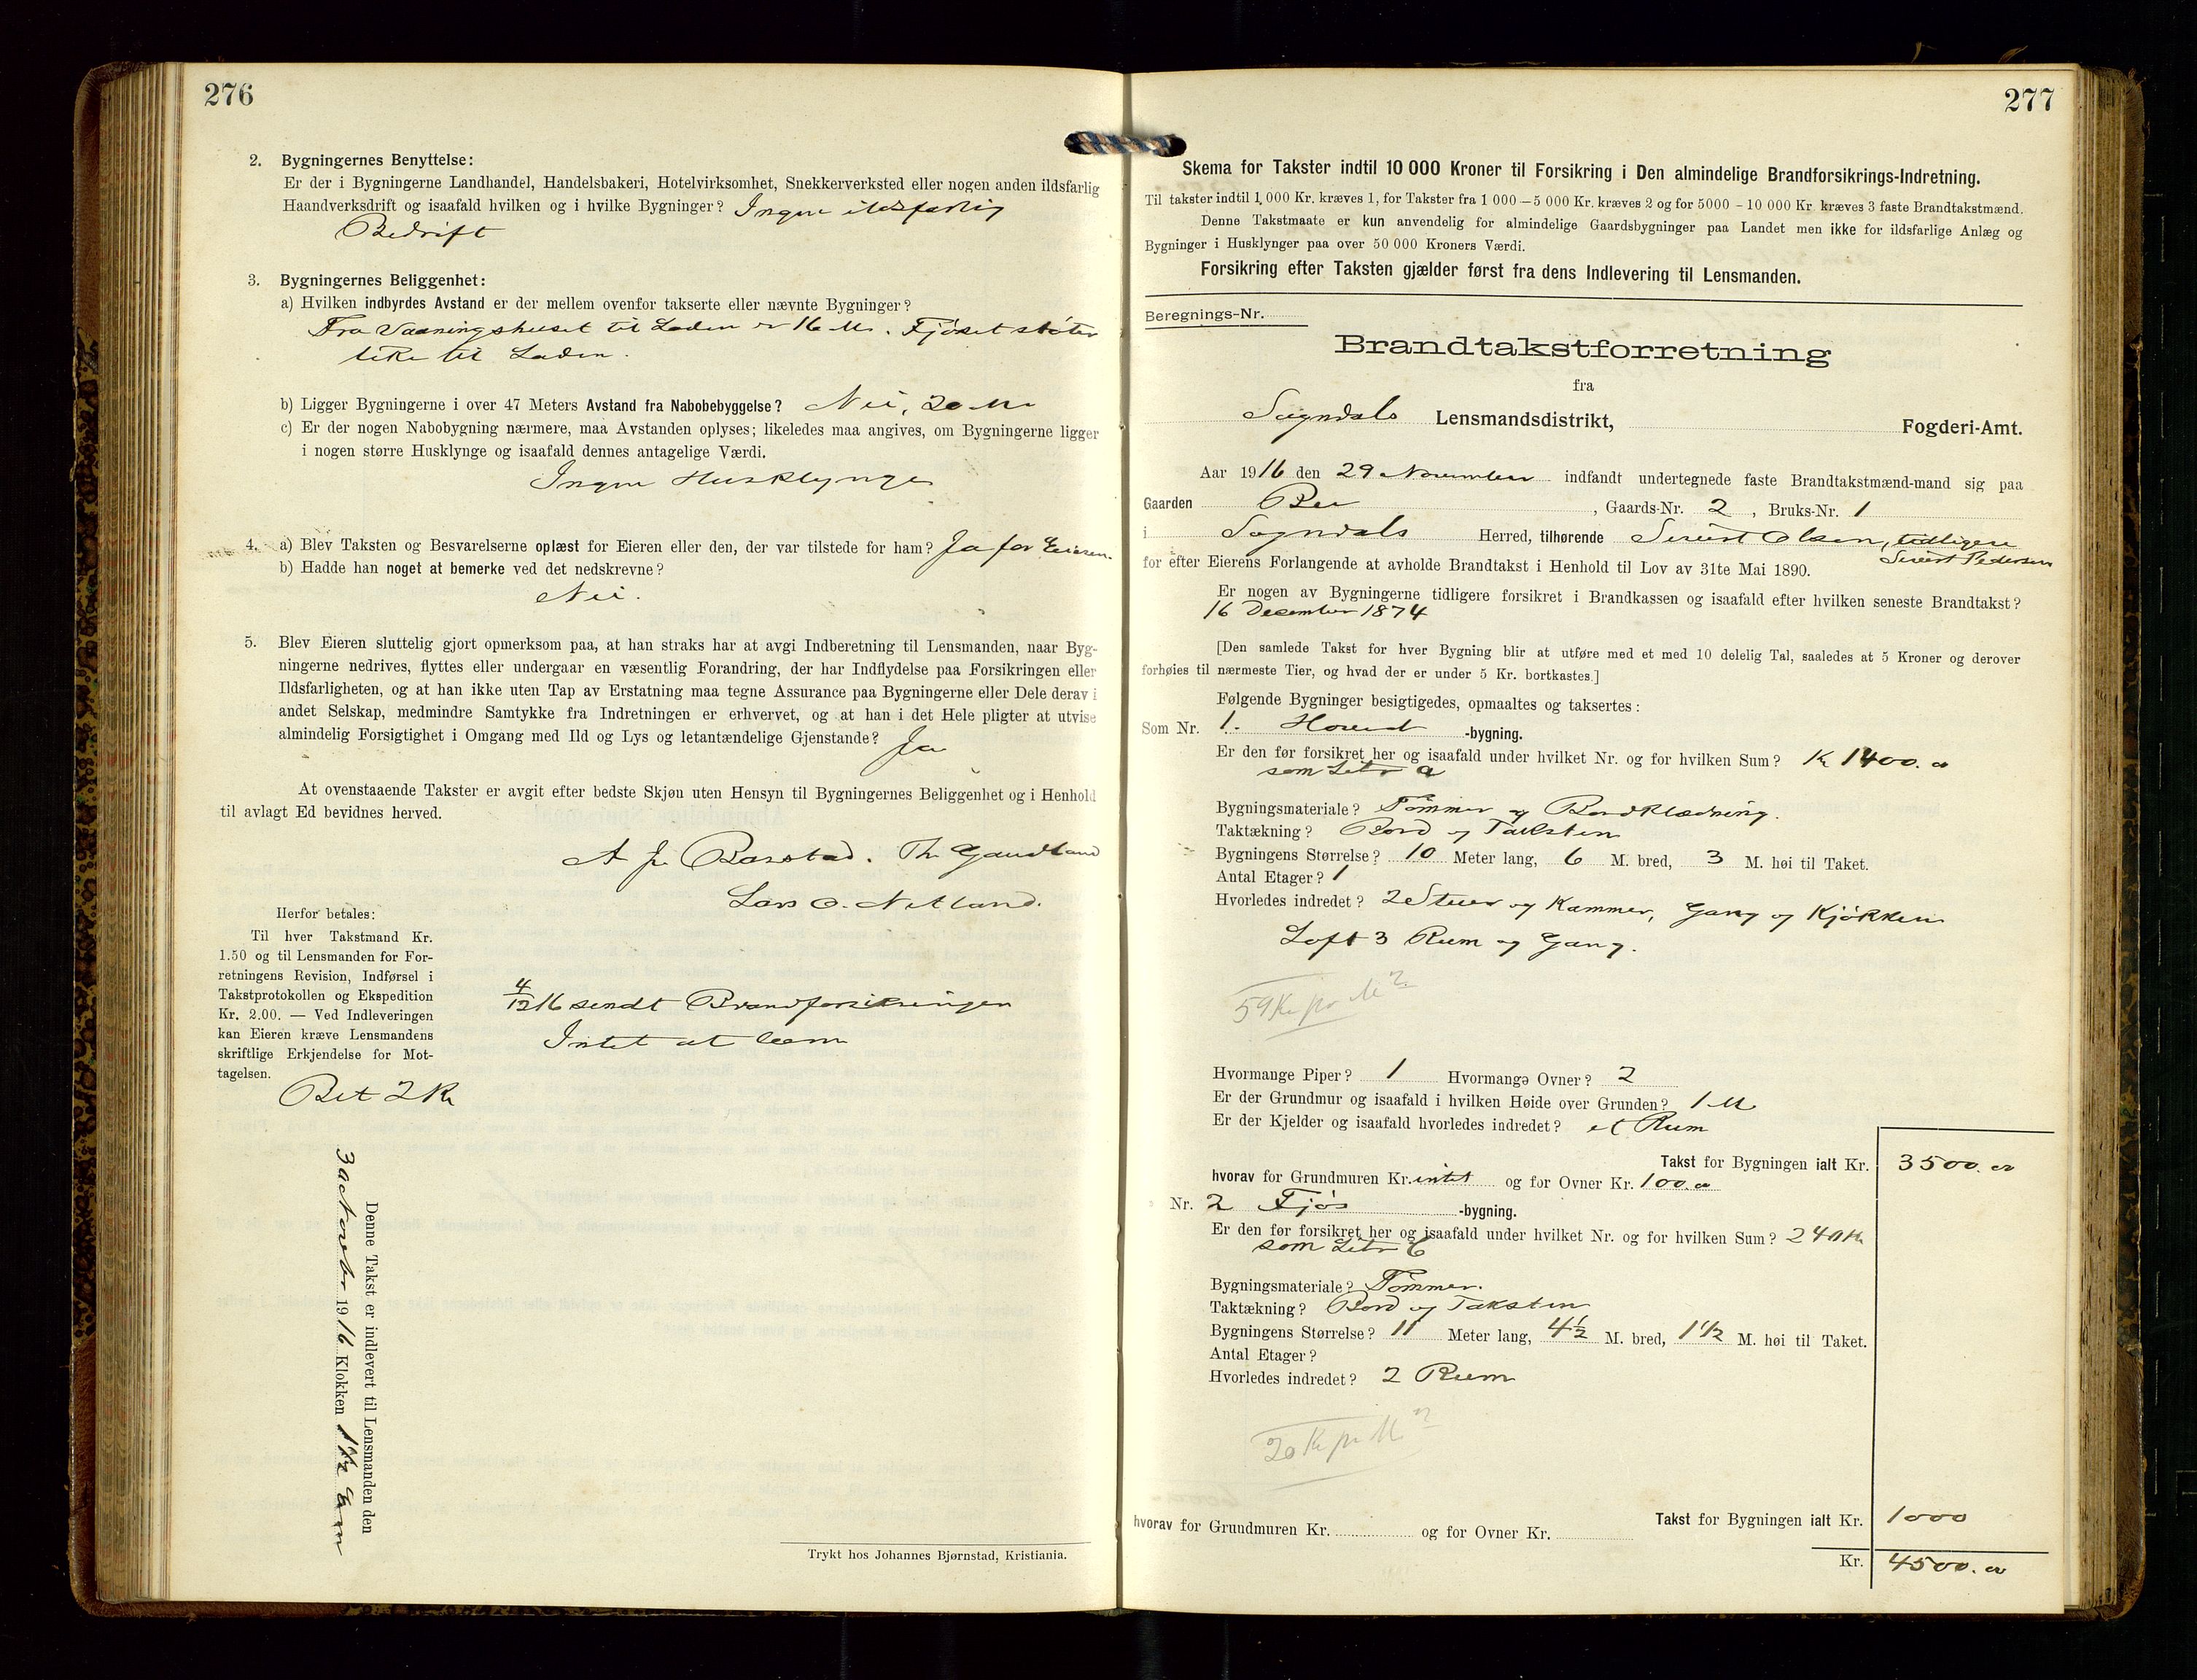 276
2. Bygningernes Benyttelse:
Er der i Bygningerne Landhandel, Handelsbakeri, Hotelvirksomhet, Snekkerverksted eller nogen anden ildsfarlig
Haandverksdrift og isaafald hvilken og i hvilke Bygninger? Ingen ildsfarlig
Bedrift
3. Bygningernes Beliggenhet:
a) Hvilken indbyrdes Avstand er der mellem ovenfor takserte eller nævnte Bygninger?
Fra Vaaningshuset til Laden er 16 M. Fjøset støter
like til Laden.
b) Ligger Bygningerne i over 47 Meters Avstand fra Nabobebyggelse? Nei, 20 M
c) Er der nogen Nabobygning nærmere, maa Avstanden oplyses; likeledes maa angives, om Bygningerne ligger
i nogen større Husklynge og isaafald dennes antagelige Værdi.
Ingen Husklynge
4. a) Blev Taksten og Besvarelserne oplæst for Eieren eller den, der var tilstede for ham? Ja for Eieren.
b) Hadde han noget at bemerke ved det nedskrevne?
Nei.
5. Blev Eieren sluttelig gjort opmerksom paa, at han straks har at avgi Indberetning til Lensmanden, naar Byg-
ningerne nedrives, flyttes eller undergaar en væsentlig Forandring, der har Indflydelse paa Forsikringen eller
Ildsfarligheten, og at han ikke uten Tap av Erstatning maa tegne Assurance paa Bygningerne eller Dele derav i
andet Selskap, medmindre Samtykke fra Indretningen er erhvervet, og at han i det Hele pligter at utvise
almindelig Forsigtighet i Omgang med Ild og Lys og letantændelige Gjenstande? Ja
At ovenstaaende Takster er avgit efter bedste Skjøn uten Hensyn til Bygningernes Beliggenhet og i Henhold
til avlagt Ed bevidnes herved.
Th Gaudland
Lars O. Netland.
Herfor betales:
Til hver Takstmand Kr.
1.50 og til Lensmanden for For-
retningens Revision, Indførsel i
Takstprotokollen og Ekspedition
Kr. 2.00. — Ved Indleveringen
kan Eieren kræve Lensmandens
skriftlige Erkjendelse for Mot-
tagelsen.
Bet 2 Kr
4/12 16 sendt Brandforsikringen
Intet at bem
Denne Takst er indlevert til Lensmanden den
1916 Klokken 1 1/2
Trykt hos Johannes Bjørnstad, Kristiania.
277
Skema for Takster indtil 10 000 Kroner til Forsikring i Den almindelige Brandforsikrings-Indretning.
Til takster indtil 1,000 Kr. kræves 1, for Takster fra 1 000 – 5 000 Kr. kræves 2 og for 5000 - 10 000 Kr kræves 3 faste Brandtakstmænd.
Denne Takstmaate er kun anvendelig for almindelige Gaardsbygninger paa Landet men ikke for ildsfarlige Anlæg og
Bygninger i Husklynger paa over 50 000 Kroners Værdi.
Forsikring efter Taksten gjælder først fra dens Indlevering til Lensmanden.
Beregnings-Nr.
Brandtakstforretning
fra
Sogndals Lensmandsdistrikt, Fogderi-Amt.
Aar 1916 den 29 November indfandt undertegnede faste Brandtakstmænd-mand sig paa
Gaarden , Gaards-Nr. 2, Bruks-Nr. 1
i Sogndals Herred, tilhørende Sivert Olsen, tidligere
Sivert Pedersen
for efter Eierens Forlangende at avholde Brandtakst i Henhold til Lov av 31te Mai 1890.
Er nogen av Bygningerne tidligere forsikret i Brandkassen og isaafald efter hvilken seneste Brandtakst?
16 Desember 1874
[Den samlede Takst for hver Bygning blir at utføre med et med 10 delelig Tal, saaledes at 5 Kroner og derover
forhøies til nærmeste Tier, og hvad der er under 5 Kr. bortkastes.]
Følgende Bygninger besigtigedes, opmaaltes og taksertes:
Som Nr. 1. Hoved -bygning.
Er den før forsikret her og isaafald under hvilket Nr. og for hvilken Sum? Kr 1400.
som Litr a
Bygningsmateriale? Tømmer og Bordklædning.
Taktækning? Bord og Taksten
Bygningens Størrelse? 10 Meter lang, 6 M. bred, 3 M. høi til Taket.
Antal Etager? 1
Hvorledes indredet? 2 Stuer og Kammer, Gang og Kjøkken
Loft 3 Rum og Gang.
59 Kr pr M2
Hvormange Piper? 1 Hvormange Ovner? 2
Er der Grundmur og isaafald i hvilken Høide over Grunden? 1 M
Er der Kjelder og isaafald hvorledes indredet? et Rum
Takst for Bygningen ialt Kr. 3500.
hvorav for Grundmuren Kr. intet og for Ovner Kr. 100.
Nr. 2 Fjøs -bygning.
Er den før forsikret her og isaafald under hvilket Nr. og for hvilken Sum? 240 Kr
som Litr C
Bygningsmateriale? Tømmer.
Taktækning? Bord og Taksten
Bygningens Størrelse? 11 Meter lang, 4 1/2 M. bred, 1 1/2 M. høi til Taket.
Antal Etager?
Hvorledes indredet? 2 Rum
20 Kr pr M2
Takst for Bygningen ialt Kr. 1000
hvorav for Grundmuren Kr. og for Ovner Kr.
Kr. 4500.